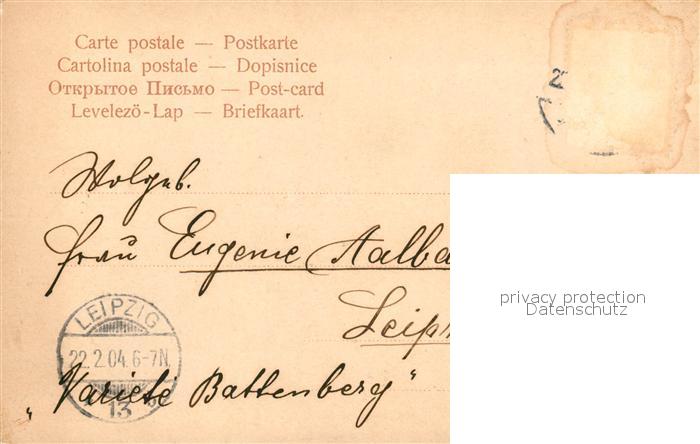 Carte postale — Postkarte
Cartolina postale — Dopisnice
Открытое Письмо — Post-card
Levelező-Lap — Briefkaart.
2
Wolgeb.
Frau Eugenie Aalba
Leip
LEIPZIG
22.2.04.6-7N.
13
„Varieté Battenberg"
privacy protection
Datenschutz